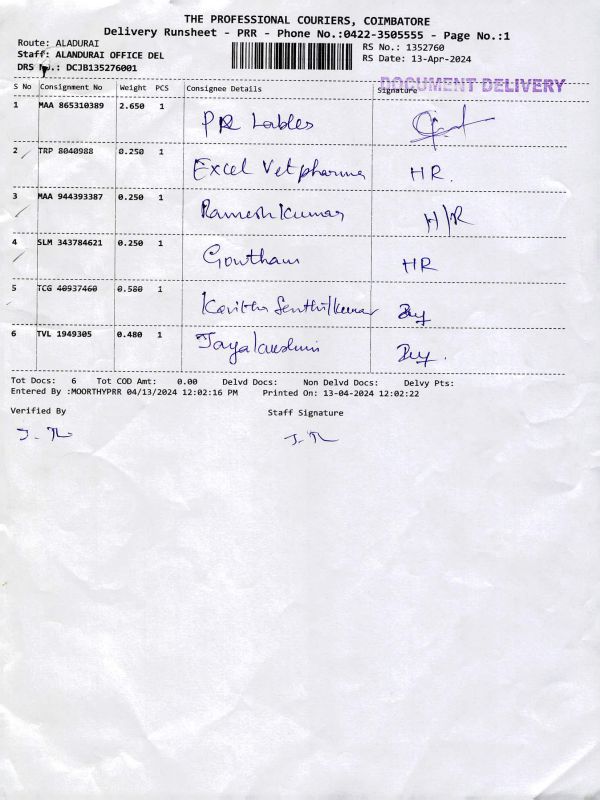 THE PROFESSIONAL COURIERS, COIMBATORE
Delivery Runsheet - PRR - Phone No.:0422-3505555 - Page No.:1
Route: ALADURAI
Staff: ALANDURAI OFFICE DEL
DRS No.: DCJB135276001
RS No.: 1352760
RS Date: 13-Apr-2024
DOCUMENT DELIVERY
S No Consignment No Weight PCS Consignee Details Signature
1 MAA 865310389 2.650 1 PR Lables
2 TRP 8040988 0.250 1 Excel Vet pharma HR.
3 MAA 944393387 0.250 1 Rameshkumar H/R
4 SLM 343784621 0.250 1 Gowtham HR
5 TCG 40937460 0.580 1 Kavitha Senthilkumar
6 TVL 1949305 0.480 1 Jayalakshmi
Tot Docs: 6 Tot COD Amt: 0.00 Delvd Docs: Non Delvd Docs: Delvy Pts:
Entered By :MOORTHYPRR 04/13/2024 12:02:16 PM Printed On: 13-04-2024 12:02:22
Verified By Staff Signature